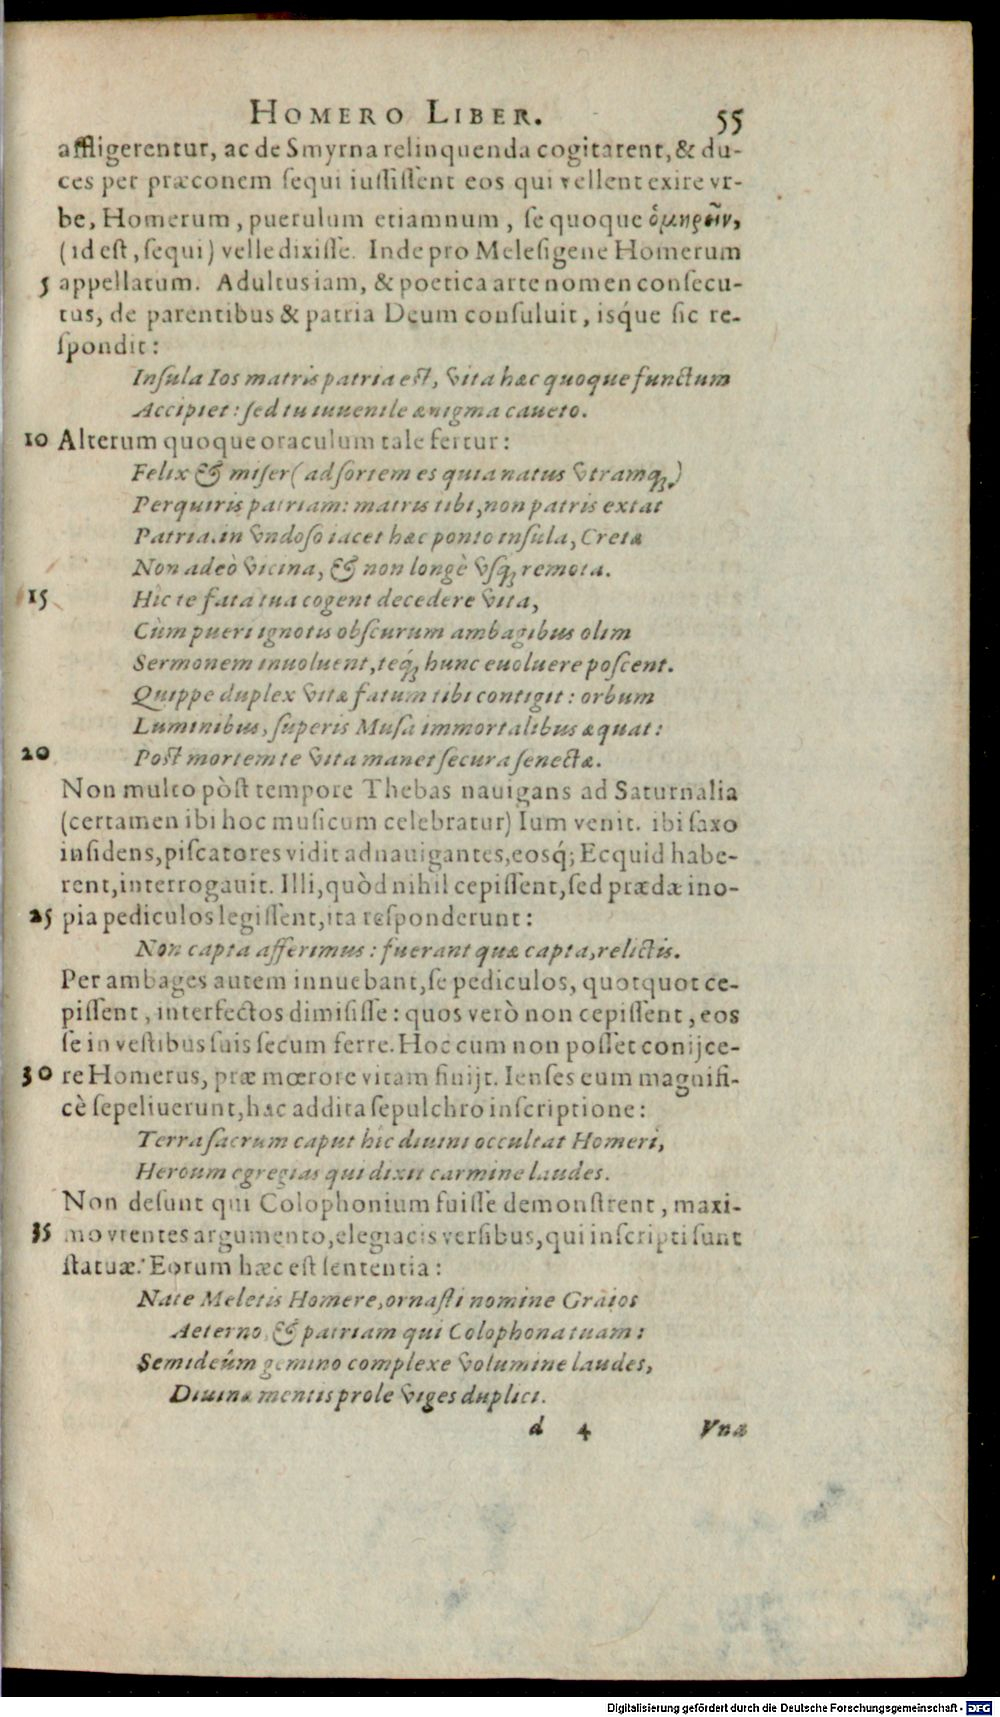 HOMERO LIBER. 55
affligerentur, ac de Smyrna relinquenda cogitarent, & du-
ces per præconem sequi iussissent eos qui vellent exire vr-
be, Homerum, puerulum etiamnum, se quoque ὁμηρεῖν,
(id est, sequi) velle dixisse. Inde pro Melesigene Homerum
5 appellatum. Adultus iam, & poetica arte nomen consecu-
tus, de parentibus & patria Deum consuluit, isq́ue sic re-
spondit:
Insula Ios matris patria est, vita hæc quoque functum
Accipiet: sed tu iuuenile ænigma caueto.
10 Alterum quoque oraculum tale fertur:
Felix & miser (ad sortem es quia natus vtramq;)
Perquiris patriam: matris tibi, non patris extat
Patria. in vndoso iacet hæc ponto insula, Cretæ
Non adeò vicina, & non longè vsq; remota.
15 Hic te fata tua cogent decedere vita,
Cùm pueri ignotis obscurum ambagibus olim
Sermonem inuoluent, teq́; hunc euoluere poscent.
Quippe duplex vitæ fatum tibi contigit: orbum
Luminibus, superis Musa immortalibus æquat:
20 Post mortem te vita manet secura senectæ.
Non multo pòst tempore Thebas nauigans ad Saturnalia
(certamen ibi hoc musicum celebratur) Ium venit. ibi saxo
insidens, piscatores vidit adnauigantes, eosq́; Ecquid habe-
rent, interrogauit. Illi, quòd nihil cepissent, sed prædæ ino-
25 pia pediculos legissent, ita responderunt:
Non capta afferimus: fuerant quæ capta, relictis.
Per ambages autem innuebant, se pediculos, quotquot ce-
pissent, interfectos dimisisse: quos verò non cepissent, eos
se in vestibus suis secum ferre. Hoc cum non posset conijce-
30 re Homerus, præ mœrore vitam finijt. Ienses eum magnifi-
cè sepeliuerunt, hac addita sepulchro inscriptione:
Terra sacrum caput hic diuini occultat Homeri,
Heroum egregias qui dixit carmine laudes.
Non desunt qui Colophonium fuisse demonstrent, maxi-
35 mo vtentes argumento, elegiacis versibus, qui inscripti sunt
statuæ. Eorum hæc est sententia:
Nate Meletis Homere, ornasti nomine Graios
Aeterno, & patriam qui Colophona tuam:
Semideûm gemino complexe volumine laudes,
Diuinæ mentis prole viges duplici.
d 4 Vnæ
Digitalisierung gefördert durch die Deutsche Forschungsgemeinschaft - DFG